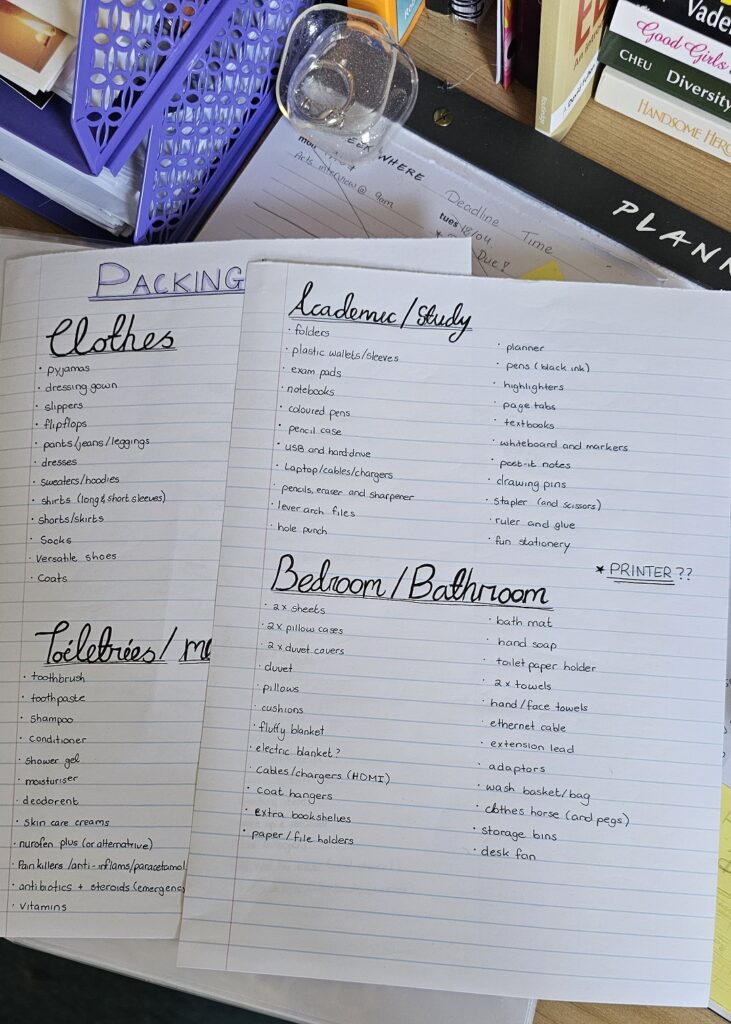 Vader
Good Girls
CHEU Diversity
HANDSOME HERO
EEK WHERE
Acts interview @ 9am
Deadline Time
tues 18/04
Due!
PLANN
PACKING
Clothes
• pyjamas
• dressing gown
• slippers
• flipflops
• pants/jeans/leggings
• dresses
• sweaters/hoodies
• shirts (long & short sleeves)
• shorts/skirts
• Socks
• Versatile shoes
• Coats
Toiletries/ me
• toothbrush
• toothpaste
• shampoo
• conditioner
• shower gel
• moisturiser
• deodorent
• skin care creams
• nurofen plus (or alternative)
• Pain killers/anti-inflams/paracetamol
• antibiotics + steroids (emergency
• Vitamins
Academic/Study
• folders
• plastic wallets/sleeves
• exam pads
• notebooks
• coloured pens
• pencil case
• USB and harddrive
• Laptop/cables/chargers
• pencils, eraser and sharpener
• lever arch files
• hole punch
• planner
• pens (black ink)
• highlighters
• page tabs
• textbooks
• whiteboard and markers
• post-it notes
• drawing pins
• stapler (and scissors)
• ruler and glue
• fun stationery
* PRINTER??
Bedroom/Bathroom
• 2x sheets
• 2x pillow cases
• 2x duvet covers
• duvet
• pillows
• cushions
• fluffy blanket
• electric blanket?
• cables/chargers (HDMI)
• coat hangers
• extra bookshelves
• paper/file holders
• bath mat
• hand soap
• toilet paper holder
• 2x towels
• hand/face towels
• ethernet cable
• extension lead
• adaptors
• wash basket/bag
• clothes horse (and pegs)
• storage bins
• desk fan